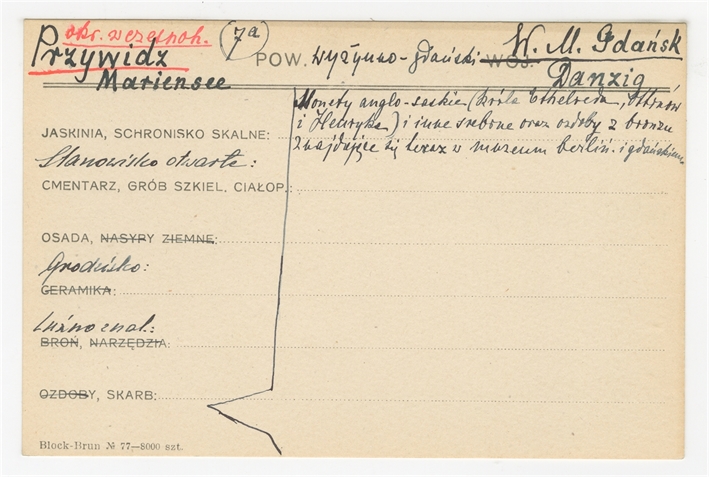 okr. wczesnoh.
Przywidz
Mariensee
7a
POW. wyżynno-gdański WOJ. W. M. Gdańsk
Danzig
Monety anglo-saskie (króla Ethelreda, Ottonów
i Henryka) i inne srebrne oraz ozdoby z bronzu
znajdujące się teraz w muzeum berliń. i gdańskiem
JASKINIA, SCHRONISKO SKALNE:
Stanowisko otwarte:
CMENTARZ, GRÓB SZKIEL, CIAŁOP.:
OSADA, NASYPY ZIEMNE:
Grodzisko:
CERAMIKA:
Luźno znal.:
BROŃ, NARZĘDZIA:
OZDOBY, SKARB:
Block-Brun № 77—8000 szt.